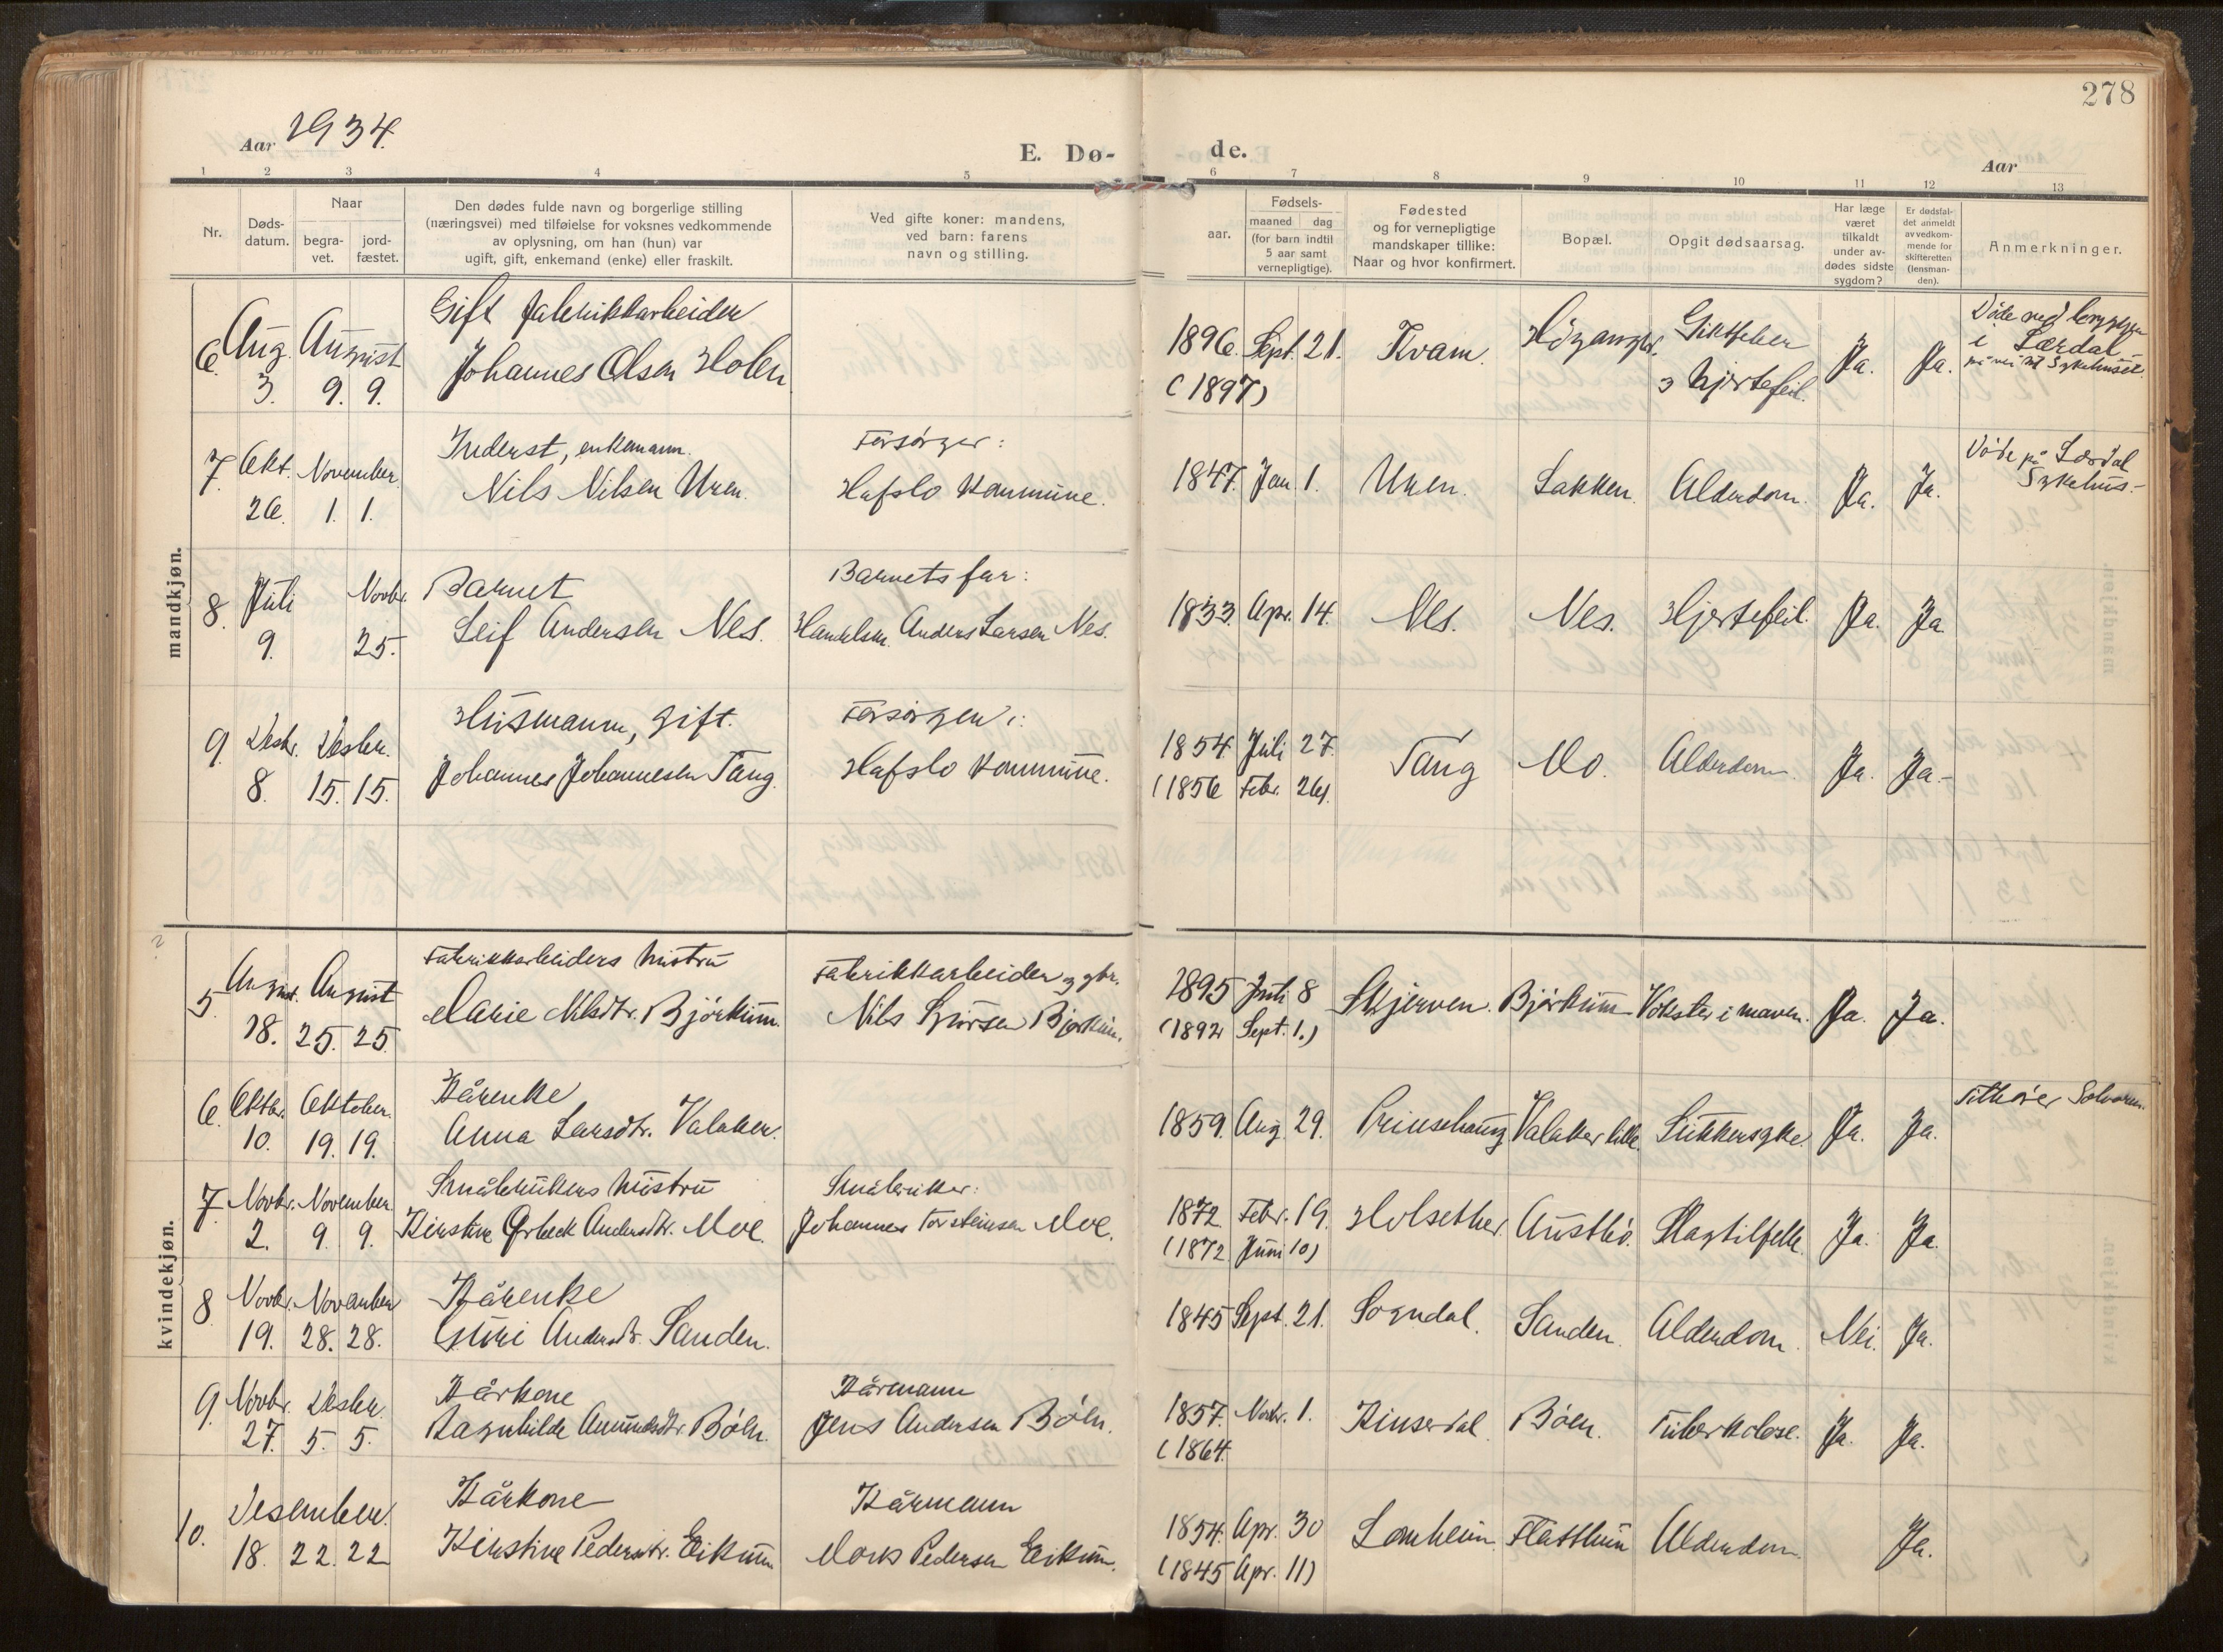 278
Aar 1934.
E. Dø-
de.
Aar
1 2 3 4 5 6 7 8 9 10 11 12 13
Nr.
Døds-
datum.
Naar
begra-
vet.
jord-
fæstet.
Den dødes fulde navn og borgerlige stilling
(næringsvei) med tilføielse for voksnes vedkommende
av oplysning, om han (hun) var
ugift, gift, enkemand (enke) eller fraskilt.
Ved gifte koner: mandens,
ved barn: farens
navn og stilling.
aar.
Fødsels-
maaned dag
(for barn indtil
5 aar samt
vernepligtige).
Fødested
og for vernepligtige
mandskaper tillike:
Naar og hvor konfirmert.
Bopæl.
Opgit dødsaarsag.
Har læge
været
tilkaldt
under av-
dødes sidste
sygdom?
Er dødsfal-
det anmeldt
av vedkom-
mende for
skifteretten
(lensman-
den).
Anmerkninger.
mandkjøn.
Gift fabrikkarbeider
6 Aug. August Johannes Olsen Holen 1896. Sept. 21. Kvam. Høyanger. Ja. Ja. i Lærdal
3. 9. 9. (1897) hjertefeil. på vei til Sykehuset.
Inderst, enkemann. Forsørger: Døde på Lærdal
7. Okt. November. Nils Nilsen Uren. Hafslo kommune. 1847. Jan. 1. Uren. Lakken. Alderdom. Ja. Ja. Sykehus.-
26. 1. 1.
Barnet Barnets far:
8. Juli Novbr. Leif Andersen Nes. Handelsm. Anders Larsen Nes. 1933. Apr. 14. Nes. Nes. Hjertefeil. Ja. Ja.
9. 25.
Husmann, gift. Forsørgen:
9. Desbr. Desbr. Johannes Johannesen Tang. Hafslo kommune. 1854. Juli 27. Tang Mo. Alderdom. Ja. Ja.-
8. 15. 15. (1856 Febr. 26).
kvindekjøn.
Fabrikkarbeiders hustru Fabrikkarbeider
5. August. August Marie Nilsdtr. Bjørkum. Nils Bjørkum. 1895 Juli 8 Skjerven. Bjørkum Vokster i maven. Ja. Ja.
18. 25. 25. (1892 Sept. 1.)
Kårenke
6. Oktbr. Oktober. Anna Larsdtr. Valaker. 1859. Aug. 29. Prinsehaug Valaker Sukkersyke. Ja. Ja. Tilhører Solvorn.
10. 19. 19.
Småbrukers hustru Småbruker:
7. Novbr. November. Kirstine Ørbeck Andersdtr. Moe. Johannes Torsteinsen Moe. 1872. Febr. 19. Holsether. Austbø. Slagtilfelle. Ja. Ja.
2. 9. 9. (1872 Juni 10)
Kårenke
8. Novbr. November Guri Andersdtr. Sanden. 1845 Sept. 21. Sogndal. Sanden. Alderdom. Nei. Ja.
19. 28. 28.
Kårkone Kårmann
9. Novbr. Desbr. Ragnhilde Amundsdtr. Bøln. Jens Andersen Bøln. 1857. Novbr. 1. Kinserdal. Bøln. Tuberkolose. Ja. Ja.
27. 5. 5. (1864.
Kårkone Kårmann
10. Desember. Kirstine Pedersdtr. Eikum Mons Pedersen Eikum. 1854. Apr. 30 Lomheim. Flatthun Alderdom. Ja.
18. 22. 22 (1845 Apr. 11)